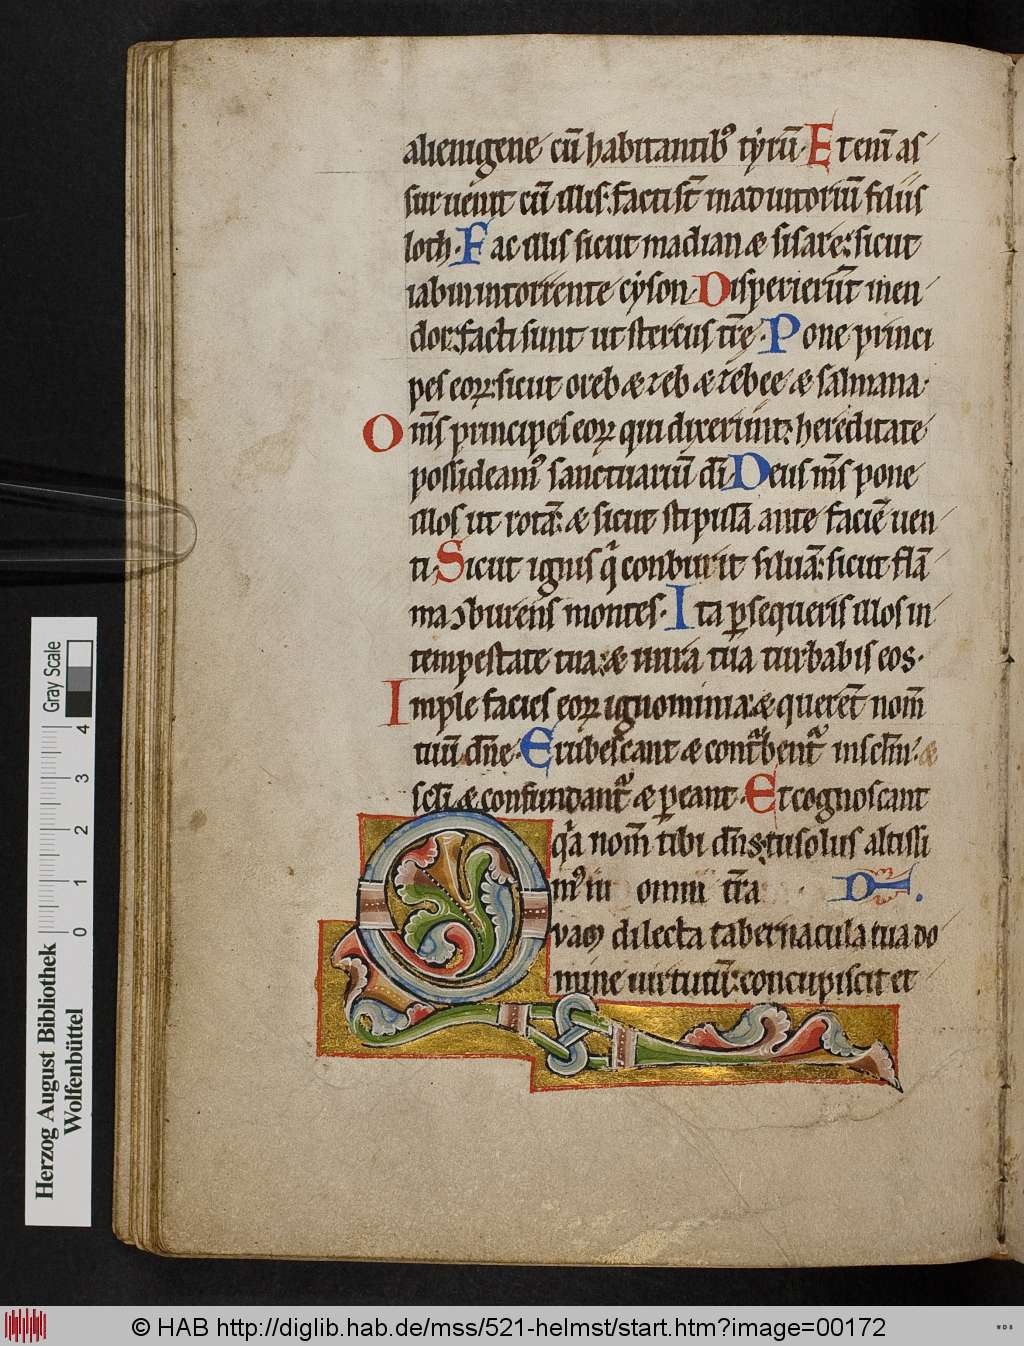 alienigene cū habitantibꝰ tyrū· Etenī as
sur uenit cū illis: facti sт̄ inadiutoriū filiis
loth· Fac illis sicut madian & sisare: sicut
iabin intorrente cyson· Disperierūt inen
dor: facti sunt ut stercus tr̄ę· Pone princi
pes eoꝝ: sicut oreb & zeb & zebee & salmana·
Om̄s principes eoꝝ qui dixerunt: hereditate
possideamꝰ sanctuariū dī· Deus m̄s pone
illos ut rotā: & sicut stipulā ante faciē uen
ti· Sicut ignis q̇ conburit siluā: sicut flā
ma ɔburens montes· Ita ꝑsequeris illos in
tempestate tua: & in ira tua turbabis eos·
Imple facies eoꝝ ignominia: & querent̄ nom̄
tuū dn̄e· Erubescant & cont̾bent̾ insclm̄· &
scli & confundant̾ & ꝑeant· Et cognoscant
q̾a nom̄ tibi dn̄s: tu solus altissi
mꝰ in omni tr̄a
Quam dilecta tabernacula tua do
mine uirtutū: concupiscit et
Gray Scale
0 1 2 3 4
Herzog August Bibliothek
Wolfenbüttel
© HAB http://diglib.hab.de/mss/521-helmst/start.htm?image=00172